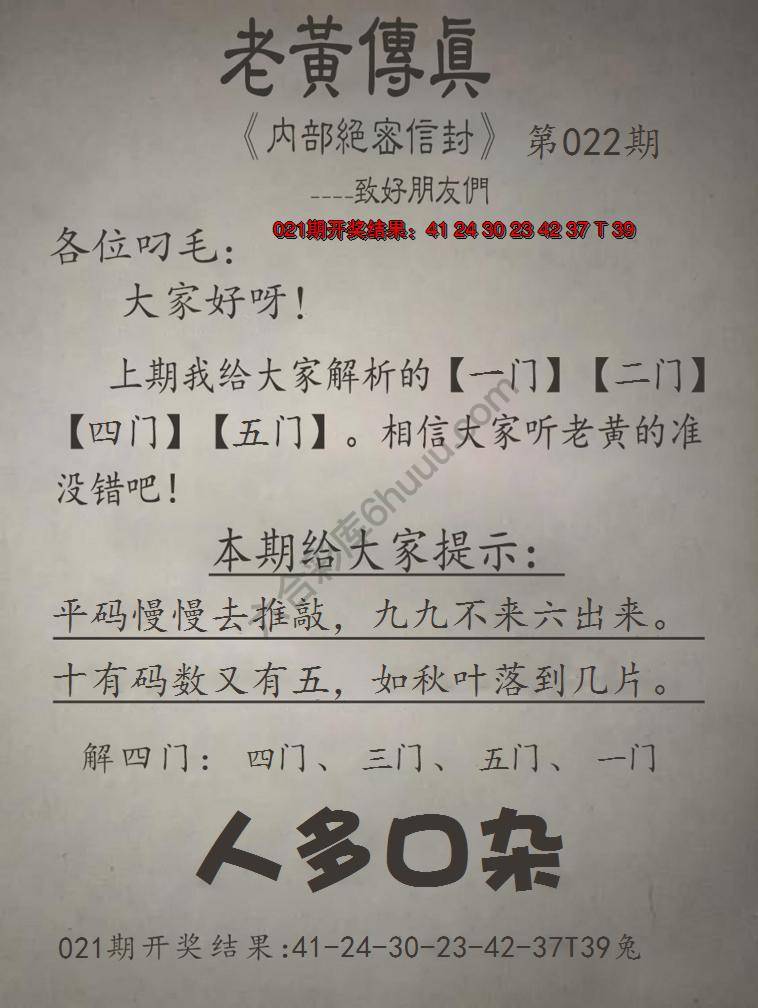 老黃傳眞
《内部絕密信封》 第022期
----致好朋友們
021期开奖结果：41 24 30 23 42 37 T 39
各位叼毛：
大家好呀！
上期我给大家解析的【一门】【二门】
【四门】【五门】。相信大家听老黄的准
没错吧！
六合彩库6huuu.com
本期给大家提示：
平码慢慢去推敲，九九不来六出来。
十有码数又有五，如秋叶落到几片。
解四门：四门、三门、五门、一门
人多口杂
021期开奖结果:41-24-30-23-42-37T39兔